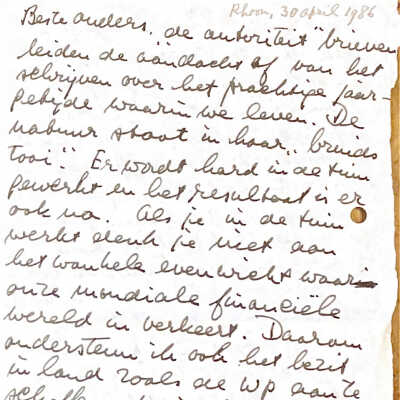 Rhoon, 30 april 1986
Beste ouders, de autoriteit" brieven
leiden de aandacht af van het
schrijven over het prachtige jaar-
getijde waarin we leven. De
natuur staat in haar „bruids
tooi". Er wordt hard in de tuin
gewerkt en het resultaat is er
ook na. Als je in de tuin
werkt denk je niet aan
het wankele evenwicht waarin
onze mondiale financiële
wereld in verkeert. Daarom
ondersteun ik ook het bezit
in land zoals de WP aan te